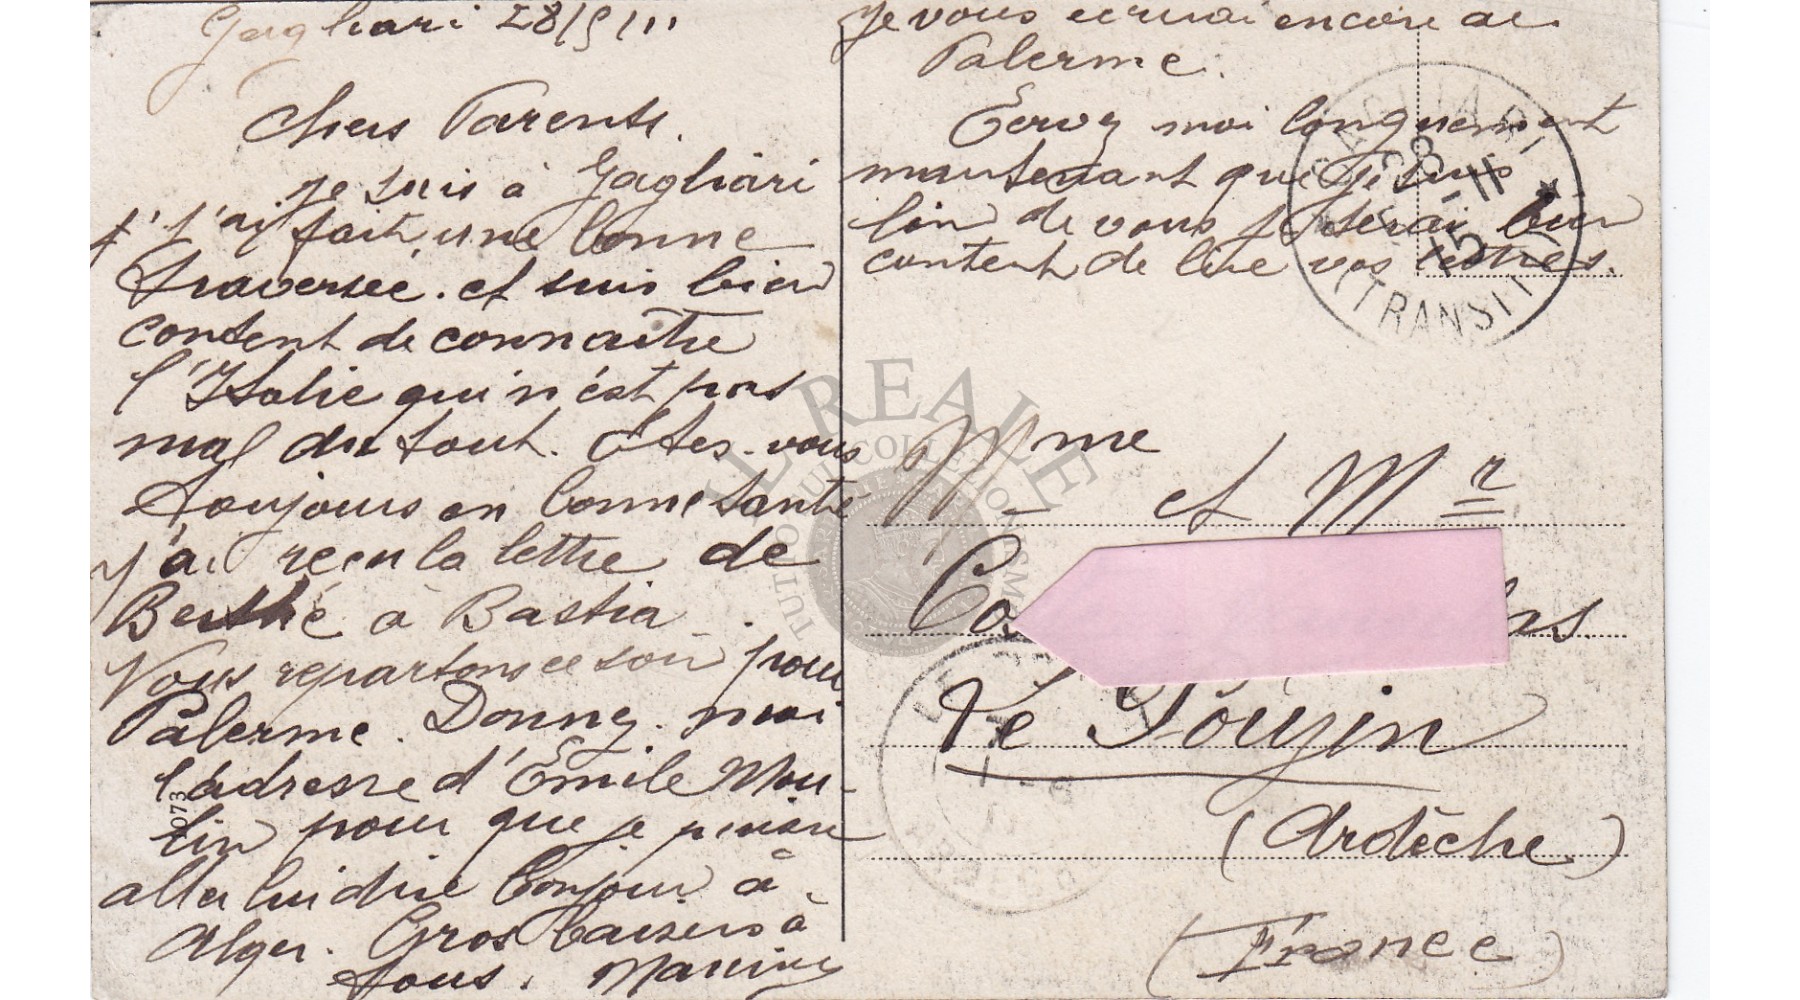 Gagliari 28/5/11
Chers Parents.
je suis à Gagliari
j'ai fait une bonne
traversée. et suis bien
content de connaitre
l'Italie qui n'est pas
mal du tout. Etes-vous
toujours en bonne santé
j'ai reçu la lettre de
Berthe à Bastia
Nous repartons ce soir pour
Palerme. Donnez-moi
l'adresse d'Emile Mou-
lin pour que je puisse
aller lui dire bonjour à
Alger. Gros baisers à
tous.
1073
je vous ecrirai encore de
Palerme.
Ecrivez moi longuement
maintenant que je suis
loin de vous je serai bien
content de lire vos lettres.
CAGLIARI
28
5-11
15
(TRANSITI)
IL REALE
TUTTO COLLEZIONISMO
Mme et Mr
Le Pouzin
(Ardèche)
(France)